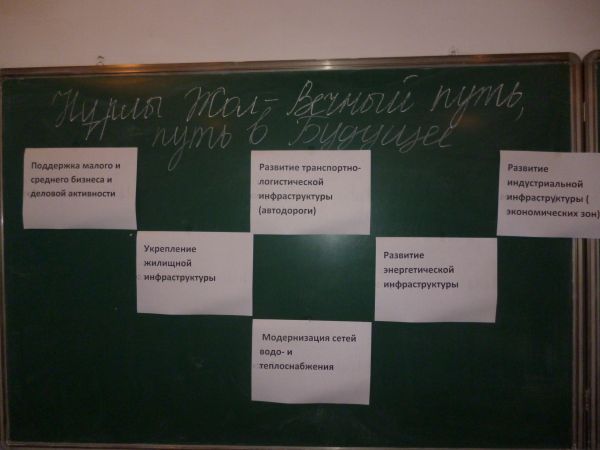 Нұрлы Жол - Вечный путь,
путь в Будущее
Поддержка малого и
среднего бизнеса и
деловой активности
Развитие транспортно-
логистической
инфраструктуры
(автодороги)
Развитие
индустриальной
инфраструктуры (
экономических зон)
Укрепление
жилищной
инфраструктуры
Развитие
энергетической
инфраструктуры
Модернизация сетей
водо- и
теплоснабжения